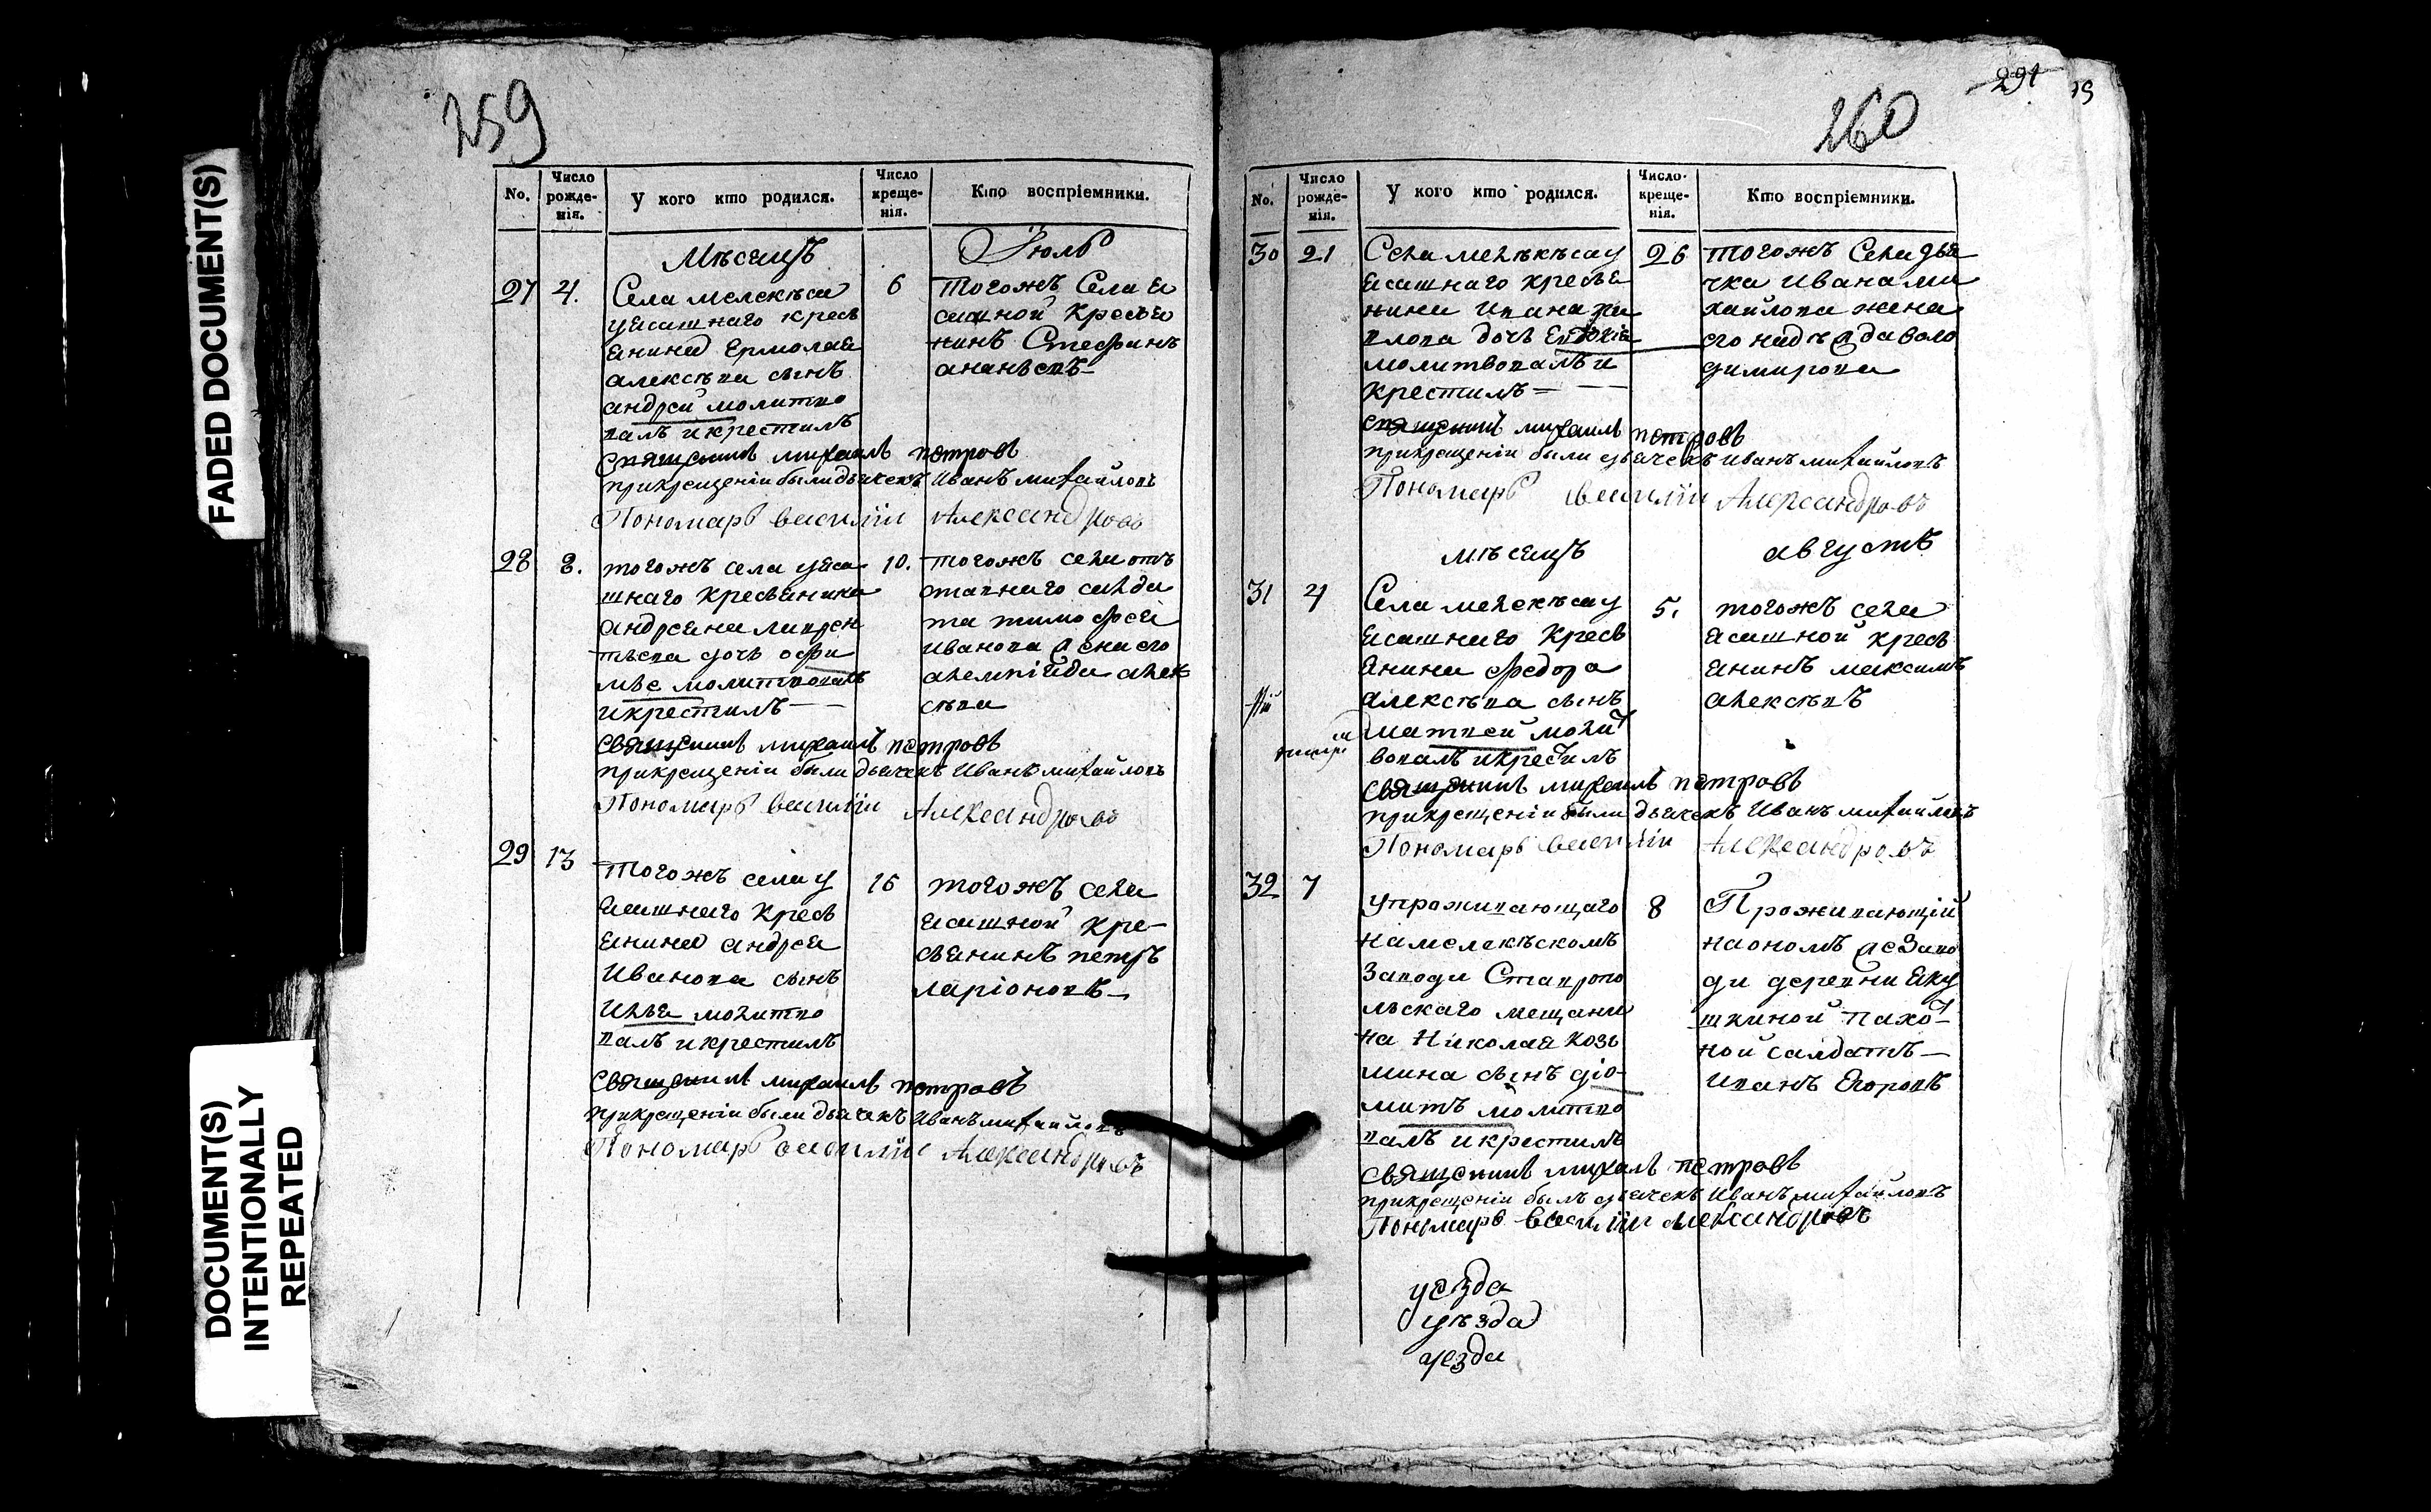 FADED DOCUMENT(S)
DOCUMENT(S)
INTENTIONALLY
REPEATED
259
No.
Число рожде-нія.
У кого кто родился.
Число креще-нія.
Кто воспріемники.
Мѣсецъ
Июль
27
4.
Села мелекѣса
уясашнаго кресь
янина Ермолая
алексѣва сынъ
андрей молитво
валъ икрестилъ
6
тогожъ Села яс
сашной кресья
нинъ Стефанъ
ананьевъ
священникъ михаилъ петровъ
прикрещеніи были дьячекъ Иванъ михайловъ
Пономарь василіи Александровъ
28
8.
тогожъ села уяса
шнаго кресьянина
андреяна лаврен
тьева дочь офи
мье молитвовалъ
икрестилъ
10.
тогожъ села отъ
ставнаго салда
та тимофея
Иванова жена его
алемпіяда алек
сѣва
священникъ михаилъ петровъ
прикрещеніи были дьячекъ Иванъ михайловъ
Пономарь василіи Александровъ
29
13
тогожъ села у
ясашнаго кресь
янина андрея
Иванова сынъ
Илья молитво
валъ икрестилъ
15
тогожъ села
ясашной кре-
сьянинъ петръ
ларіоновъ
священникъ михаилъ петровъ
прикрещеніи были дьячекъ Иванъ михайловъ
Пономарь василіи Александровъ
291
260
No.
Число рожде-нія.
У кого кто родился.
Число креще-нія.
Кто воспріемники.
30
21
Села мелѣкѣса у
ясашнаго кресья
нина Ивана
влова дочь Евдокія
молитвовалъ и
крестилъ
26
тогожъ Села дья
чка Ивана ми
хайлова жена
его надѣжда воло
димирова
священникъ михаилъ петровъ
прикрещеніи были дьячекъ Иванъ михайловъ
Пономарь василіи Александровъ
мѣсецъ
августъ
31
4
Села мелекѣса у
ясашнаго кресь
янина федора
алексѣва сынъ
матвей молит
вовалъ икрестилъ
5.
тогожъ села
ясашной кресь
янинъ максимъ
алексѣвъ
священникъ михаилъ петровъ
прикрещеніи были дьячекъ Иванъ михайловъ
Пономарь василіи Александровъ
32
7
упроживающаго
намелекѣскомъ
Заводи Ставропо
льскаго мещани
на Николая козь
мина сынъ діо-
митъ молитво
валъ икрестилъ
8
Проживающій
наономъ же Заво
ди деревни Яку
шкиной пахот
ной салдатъ
иванъ Егоровъ
священникъ михаилъ петровъ
прикрещеніи былъ дьячекъ Иванъ михайловъ
Пономарь василіи Александровъ
уезда
уѣзда
уезда